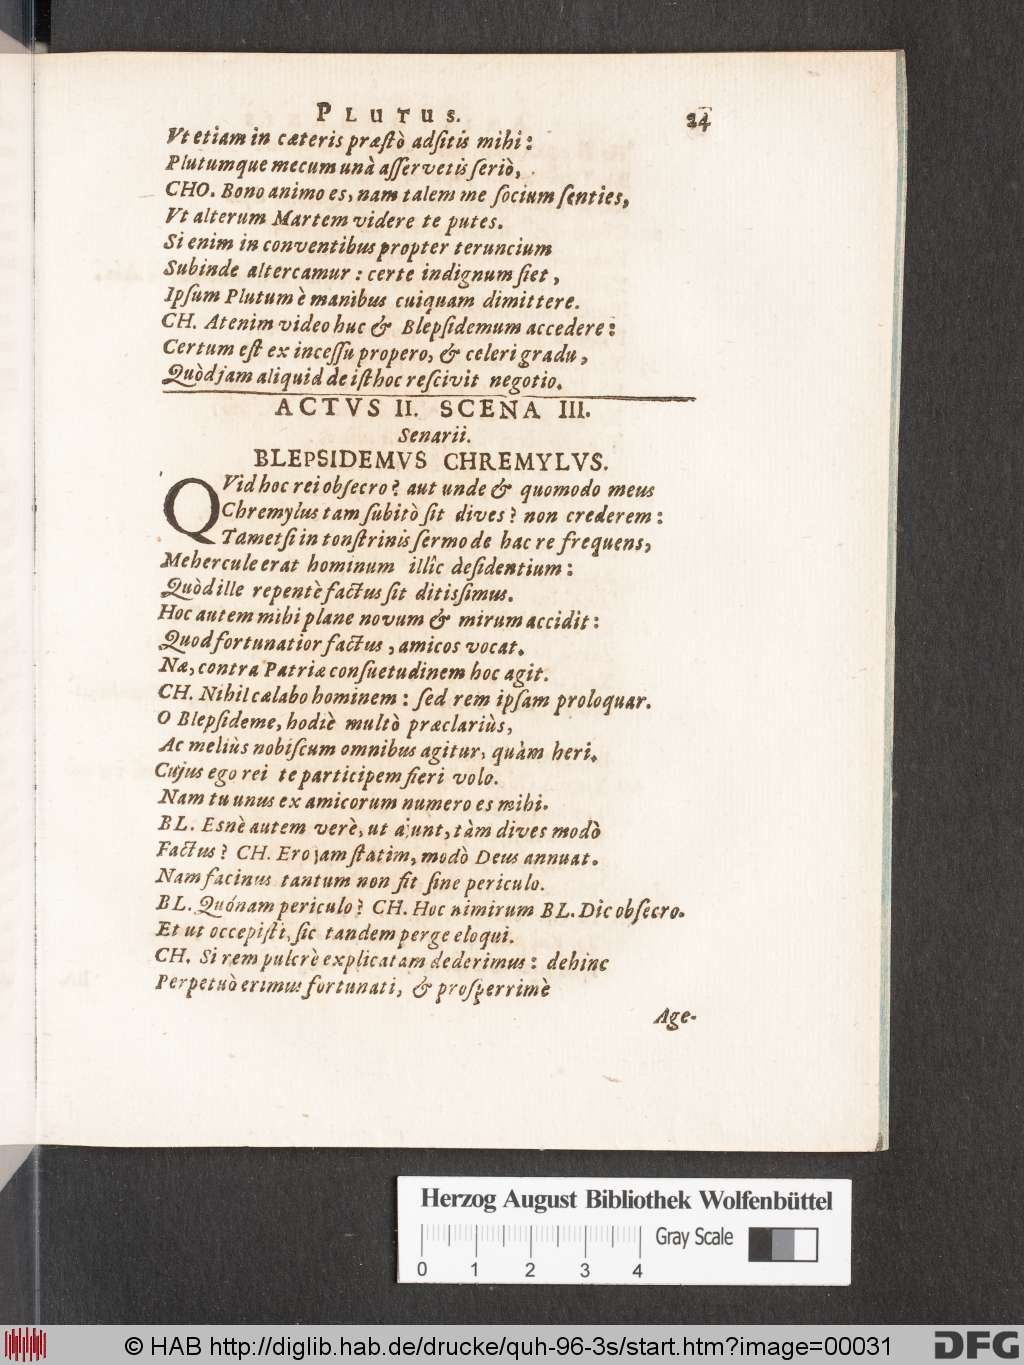 PLUTUS. 24
Vt etiam in cæteris præſtò adſitis mihi:
Plutumque mecum unà aſſervetis ſeriò,
CHO. Bono animo es, nam talem me ſocium ſenties,
Vt alterum Martem videre te putes.
Si enim in conventibus propter teruncium
Subinde altercamur: certe indignum ſiet,
Ipſum Plutum è manibus cuiquam dimittere.
CH. Atenim video huc & Blepſidemum accedere:
Certum eſt ex inceſſu propero, & celeri gradu,
Quòd jam aliquid de iſthoc reſcivit negotio.
ACTVS II. SCENA III.
Senarii.
BLEPSIDEMVS CHREMYLVS.
QVid hoc rei obſecro? aut unde & quomodo meus
Chremylus tam ſubitò ſit dives? non crederem:
Tametſi in tonſtrinis ſermo de hac re frequens,
Mehercule erat hominum illîc deſidentium:
Quòd ille repentè factus ſit ditiſſimus.
Hoc autem mihi plane novum & mirum accidit:
Quod fortunatior factus, amicos vocat.
Næ, contra Patriæ conſuetudinem hoc agit.
CH. Nihil cælabo hominem: ſed rem ipſam proloquar.
O Blepſideme, hodiè multò præclariùs,
Ac meliùs nobiſcum omnibus agitur, quàm heri.
Cujus ego rei te participem fieri volo.
Nam tu unus ex amicorum numero es mihi.
BL. Esnè autem verè, ut ajunt, tàm dives modò
Factus? CH. Ero jam ſtatim, modò Deus annuat.
Nam facinus tantum non fit ſine periculo.
BL. Quónam periculo? CH. Hoc nimirum BL. Dic obſecro.
Et ut occepiſti, ſic tandem perge eloqui.
CH. Si rem pulcrè explicatam dederimus: dehinc
Perpetuò erimus fortunati, & proſperrimè
Age-
Herzog August Bibliothek Wolfenbüttel
Gray Scale
0 1 2 3 4
© HAB http://diglib.hab.de/drucke/quh-96-3s/start.htm?image=00031
DFG